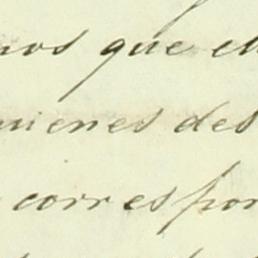 nos que el
uienes des
correspon